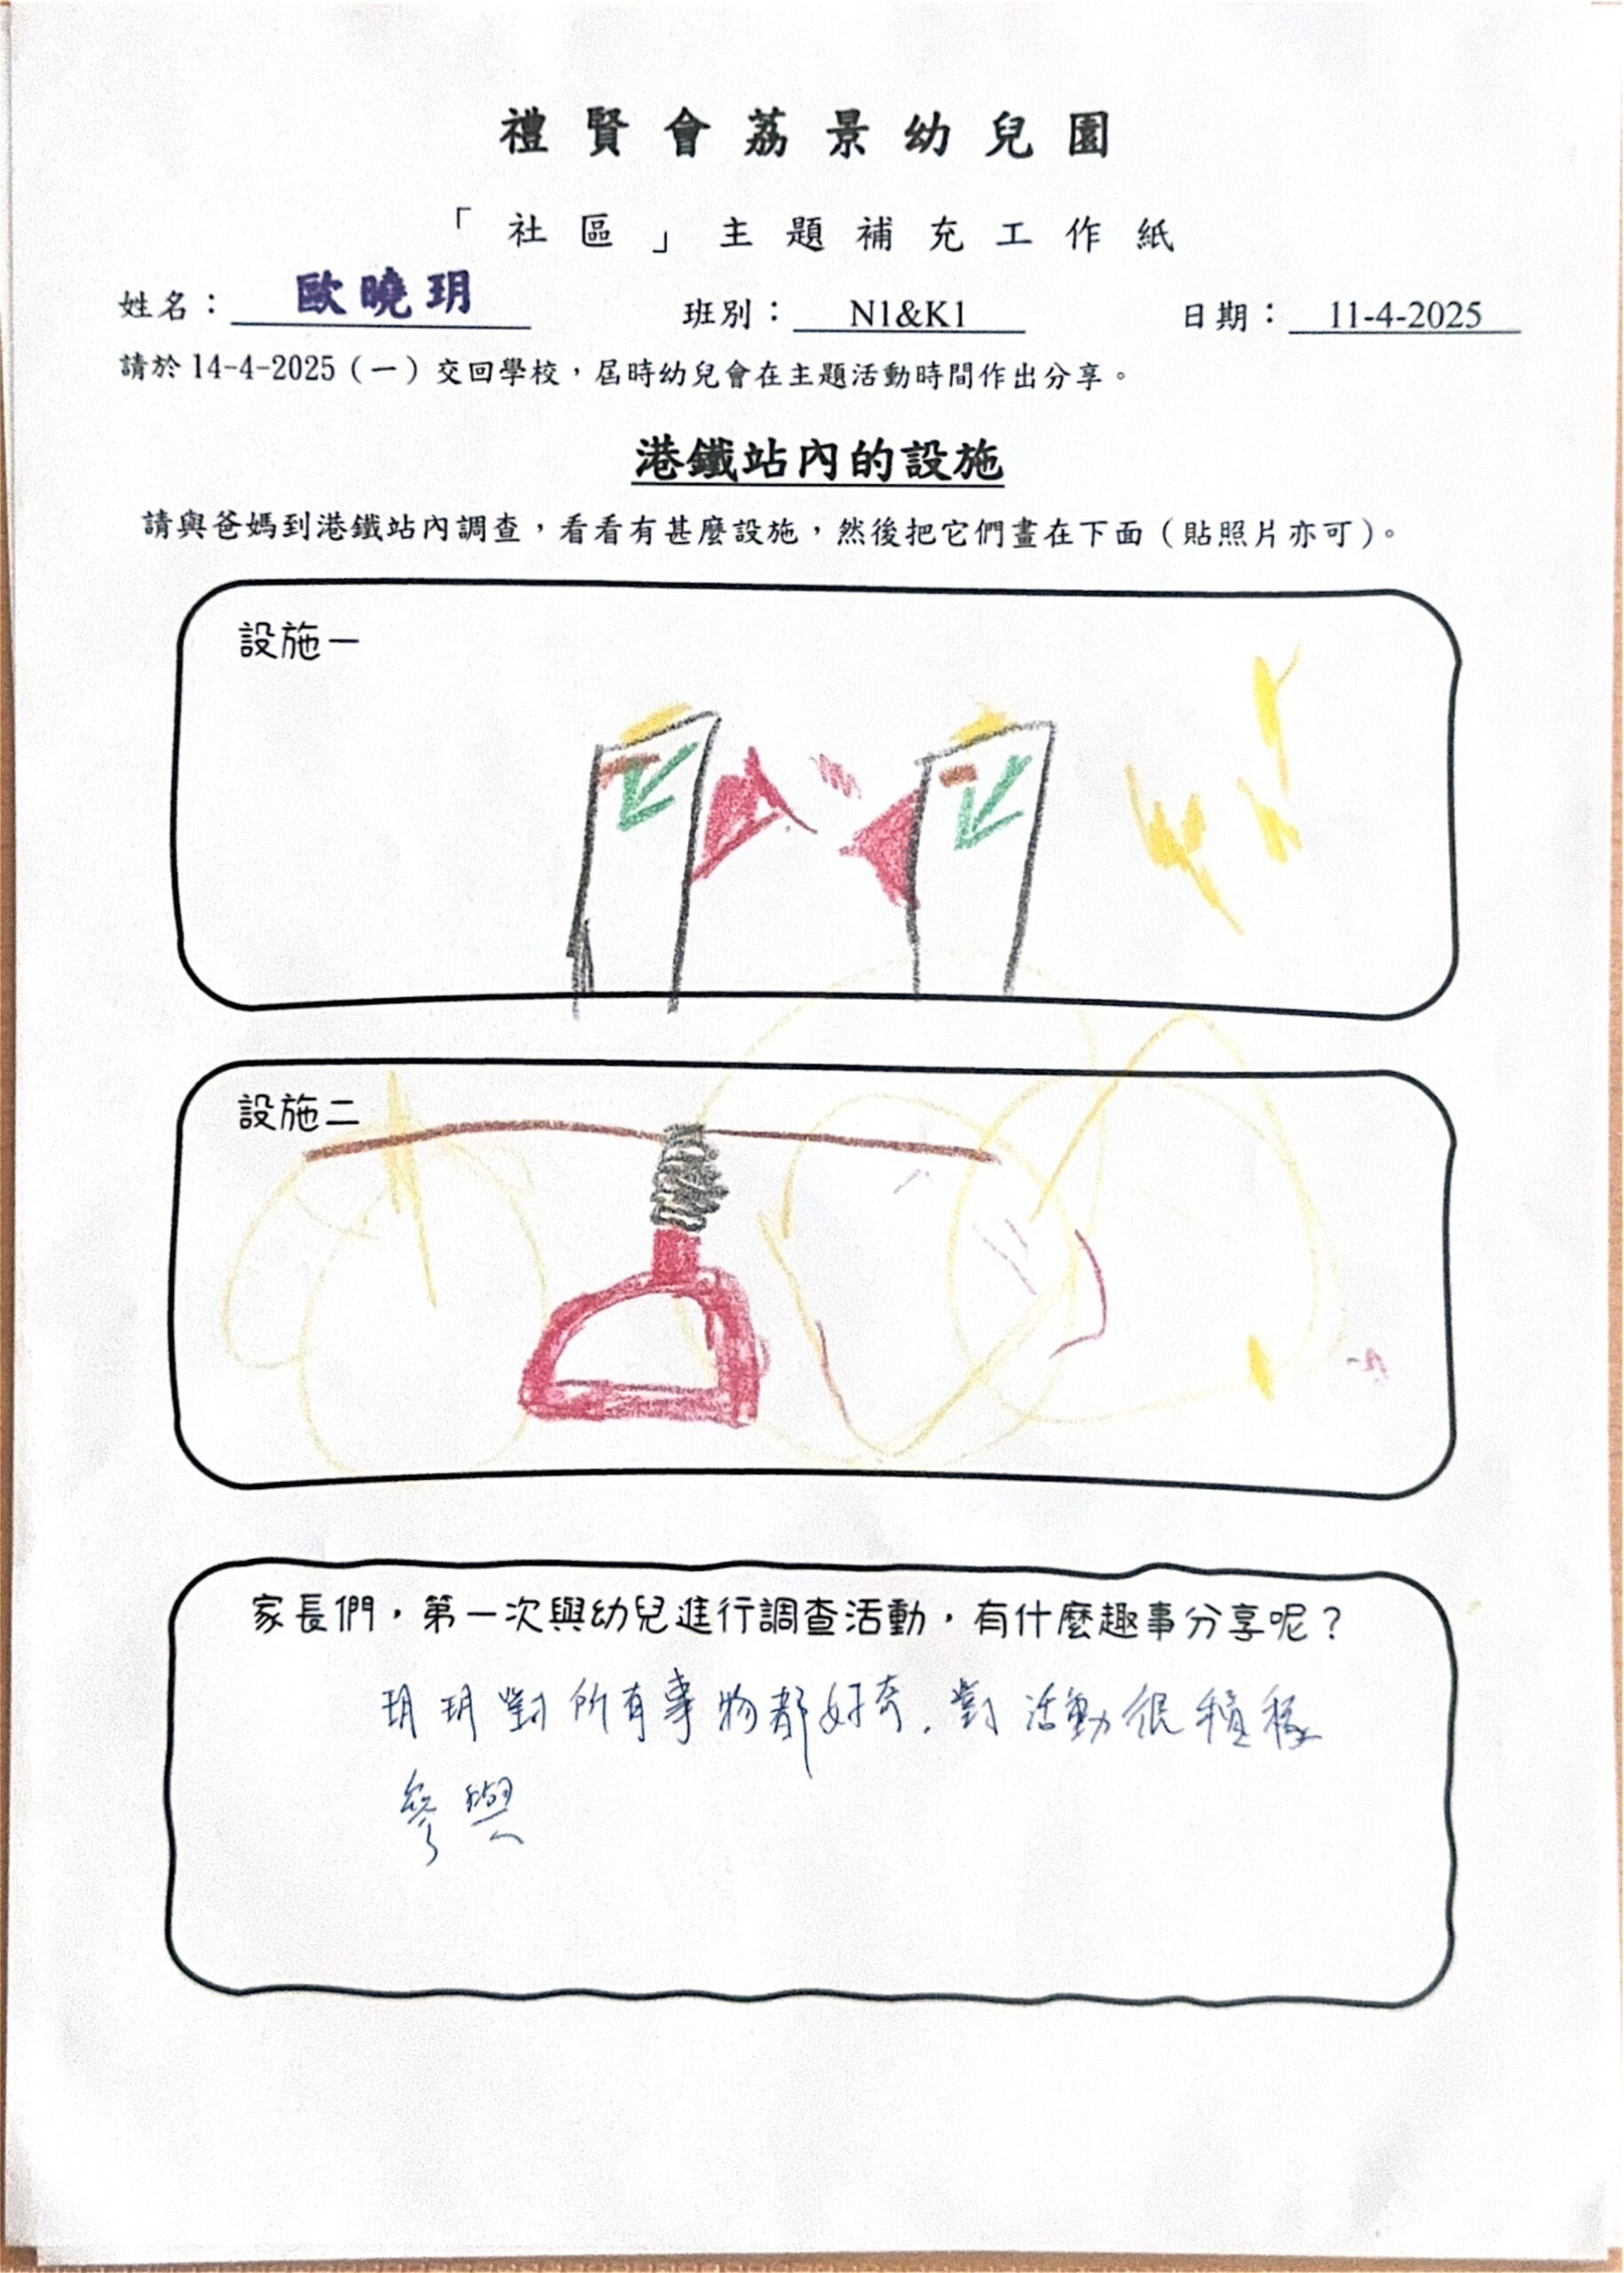 禮賢會荔景幼兒園
「社區」主題補充工作紙
姓名：歐曉玥 班別：N1&K1 日期：11-4-2025
請於14-4-2025（一）交回學校，屆時幼兒會在主題活動時間作出分享。
港鐵站內的設施
請與爸媽到港鐵站內調查，看看有甚麼設施，然後把它們畫在下面（貼照片亦可）。
設施一
設施二
家長們，第一次與幼兒進行調查活動，有什麼趣事分享呢？
玥玥對所有事物都好奇，對活動很積極
參與